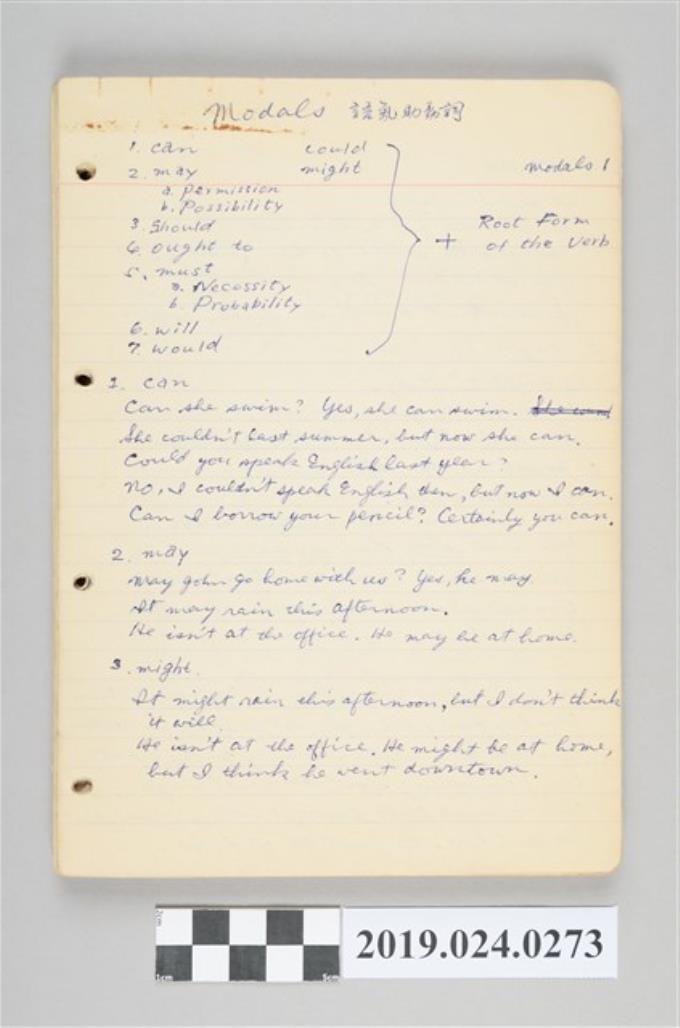 Modals 語氣助動詞
1. can could
2. may might
modals 1
a. Permission
b. Possibility
3. Should
4. ought to
+ Root Form
of the Verb
5. must
a. Necessity
b. Probability
6. will
7. would
1. can
Can she swim? Yes, she can swim.
She couldn't last summer, but now she can.
Could you speak English last year?
No, I couldn't speak English then, but now I can.
Can I borrow your pencil? Certainly you can.
2. may
may John go home with us? Yes, he may
It may rain this afternoon.
He isn't at the office. He may be at home.
3. might.
It might rain this afternoon, but I don't think
it will.
He isn't at the office. He might be at home,
but I think he went downtown.
2cm
1cm
5cm
2019.024.0273